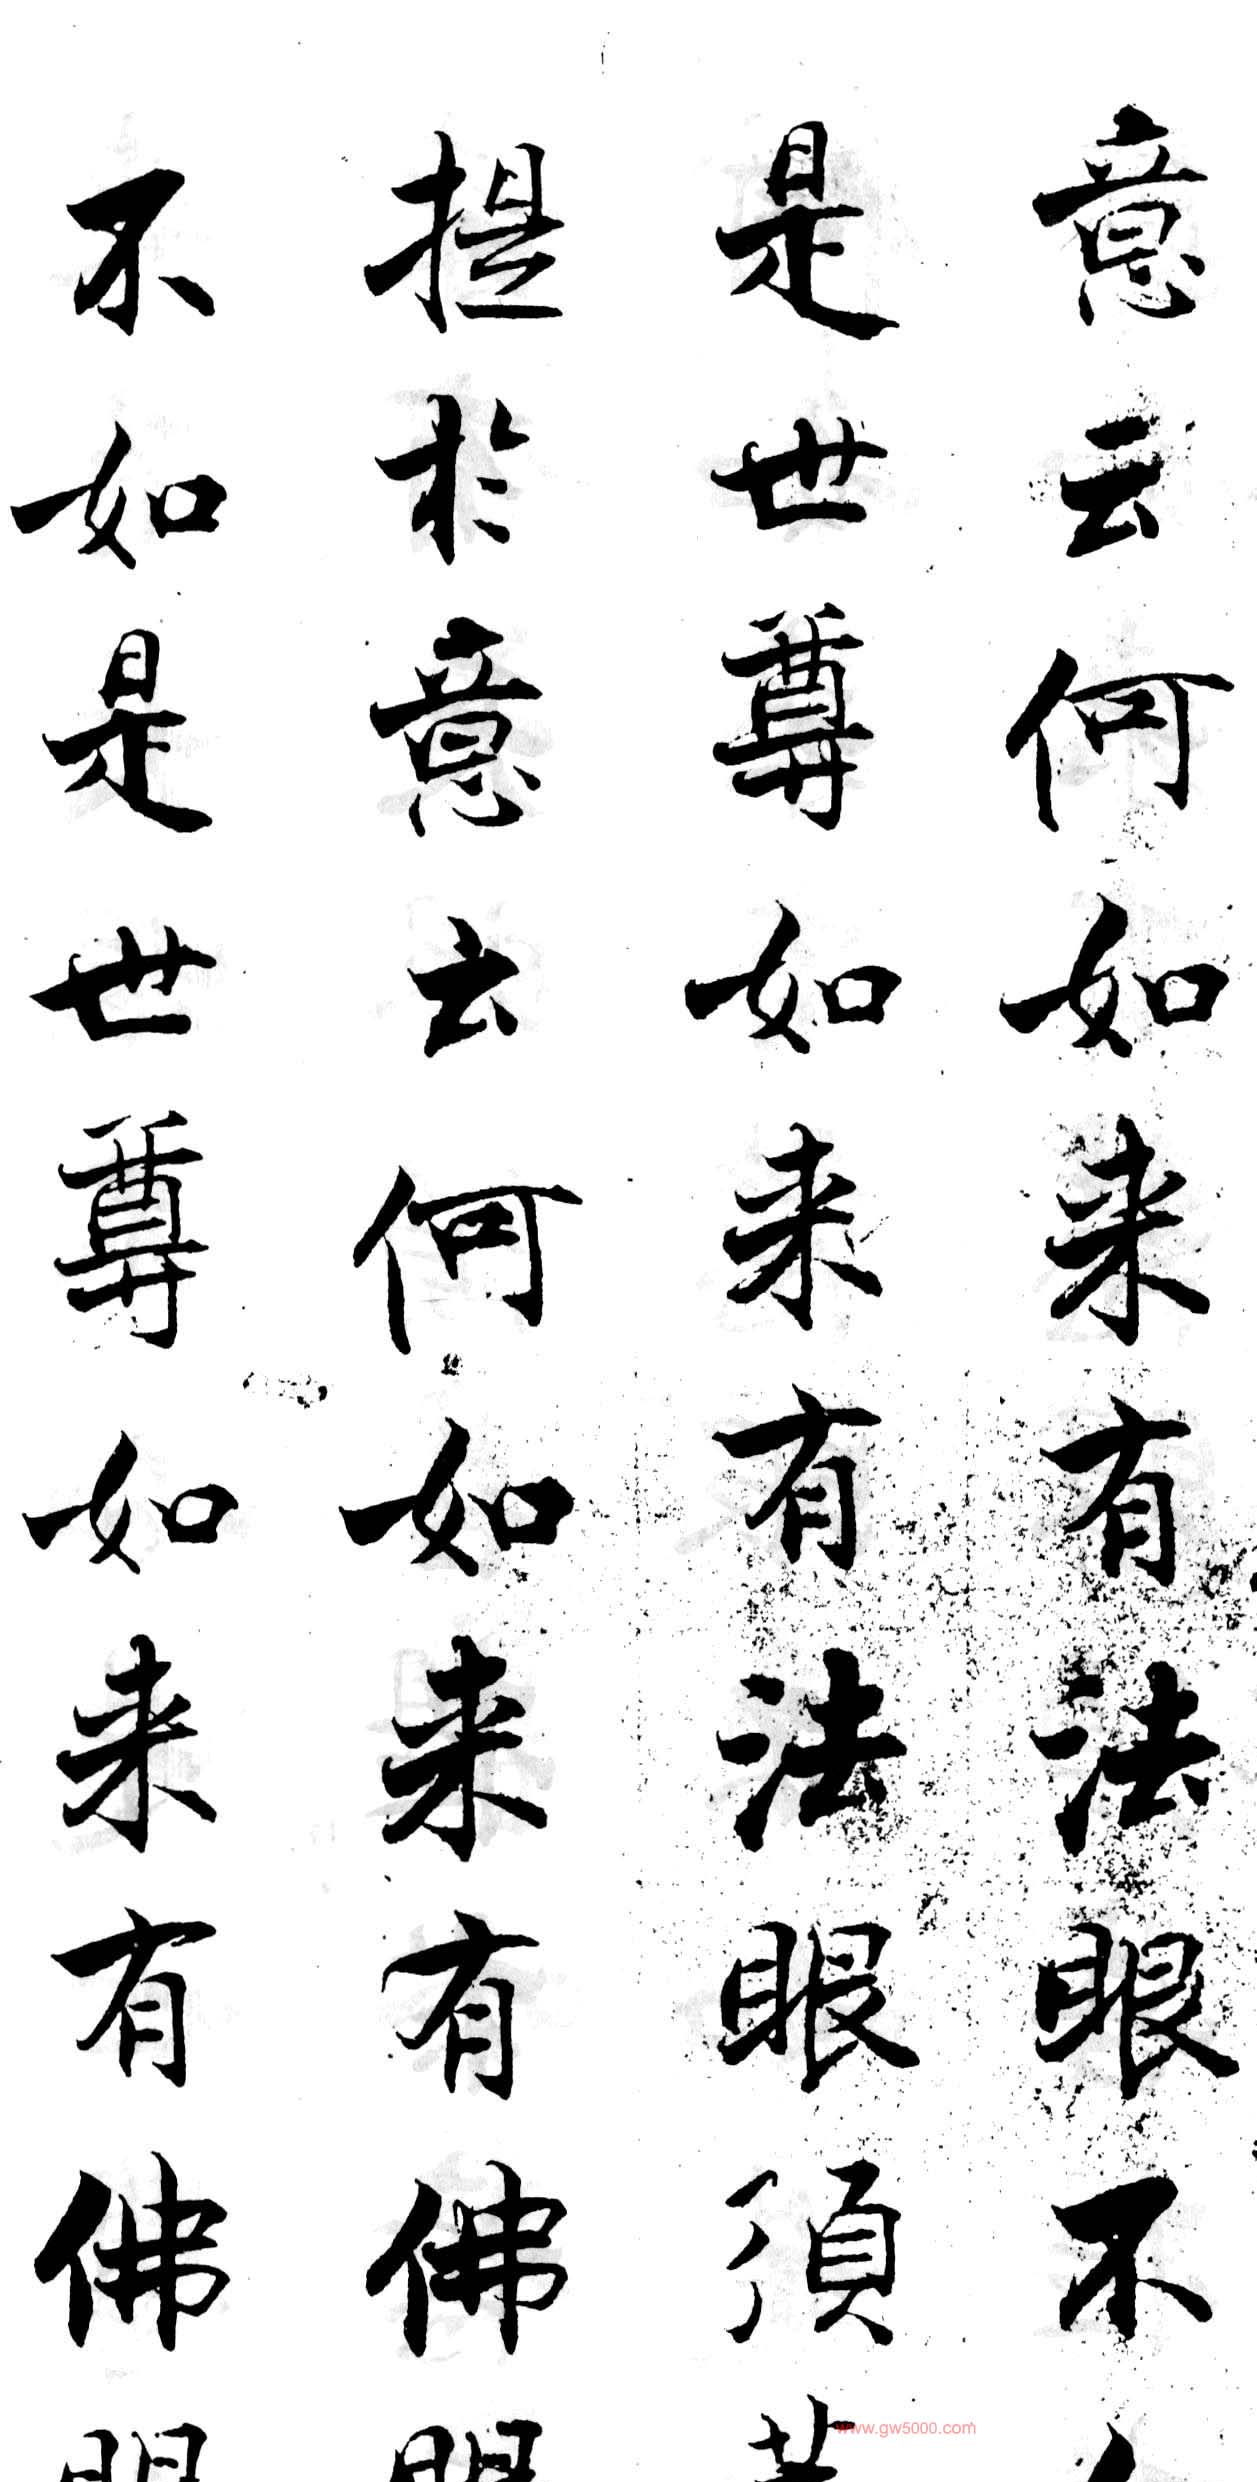 意云何如来有法眼不
是世尊如来有法眼須
提於意云何如来有佛
不如是世尊如来有佛
www.gw5000.com